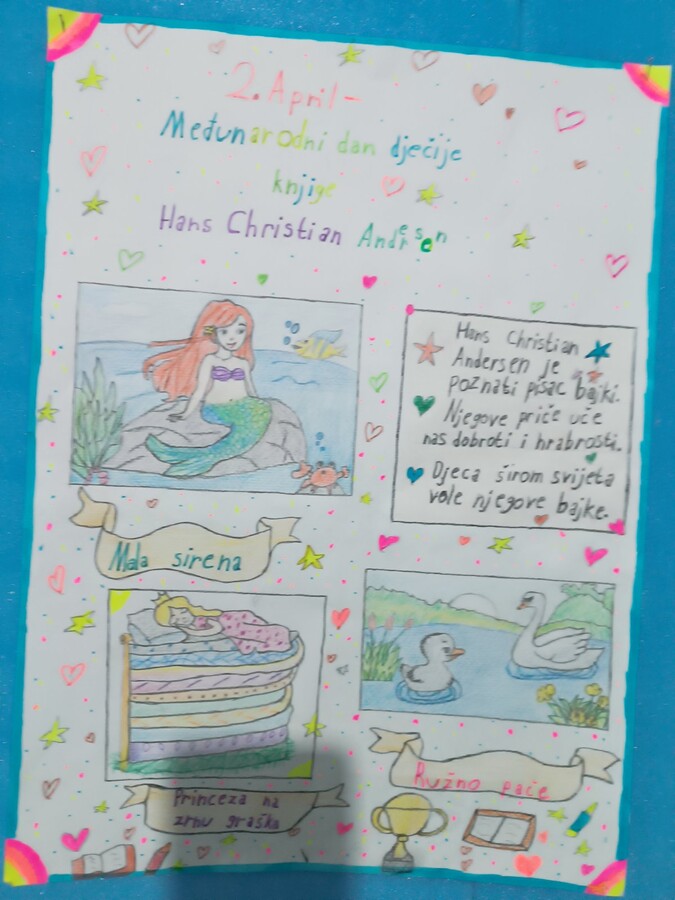 2. April -
Međunarodni dan dječije
knjige
Hans Christian Andersen
Hans Christian
Andersen je
poznati pisac bajki.
Njegove priče uče
nas dobroti i hrabrosti.
Djeca širom svijeta
vole njegove bajke.
Mala sirena
Princeza na
zrnu graška
Ružno pače